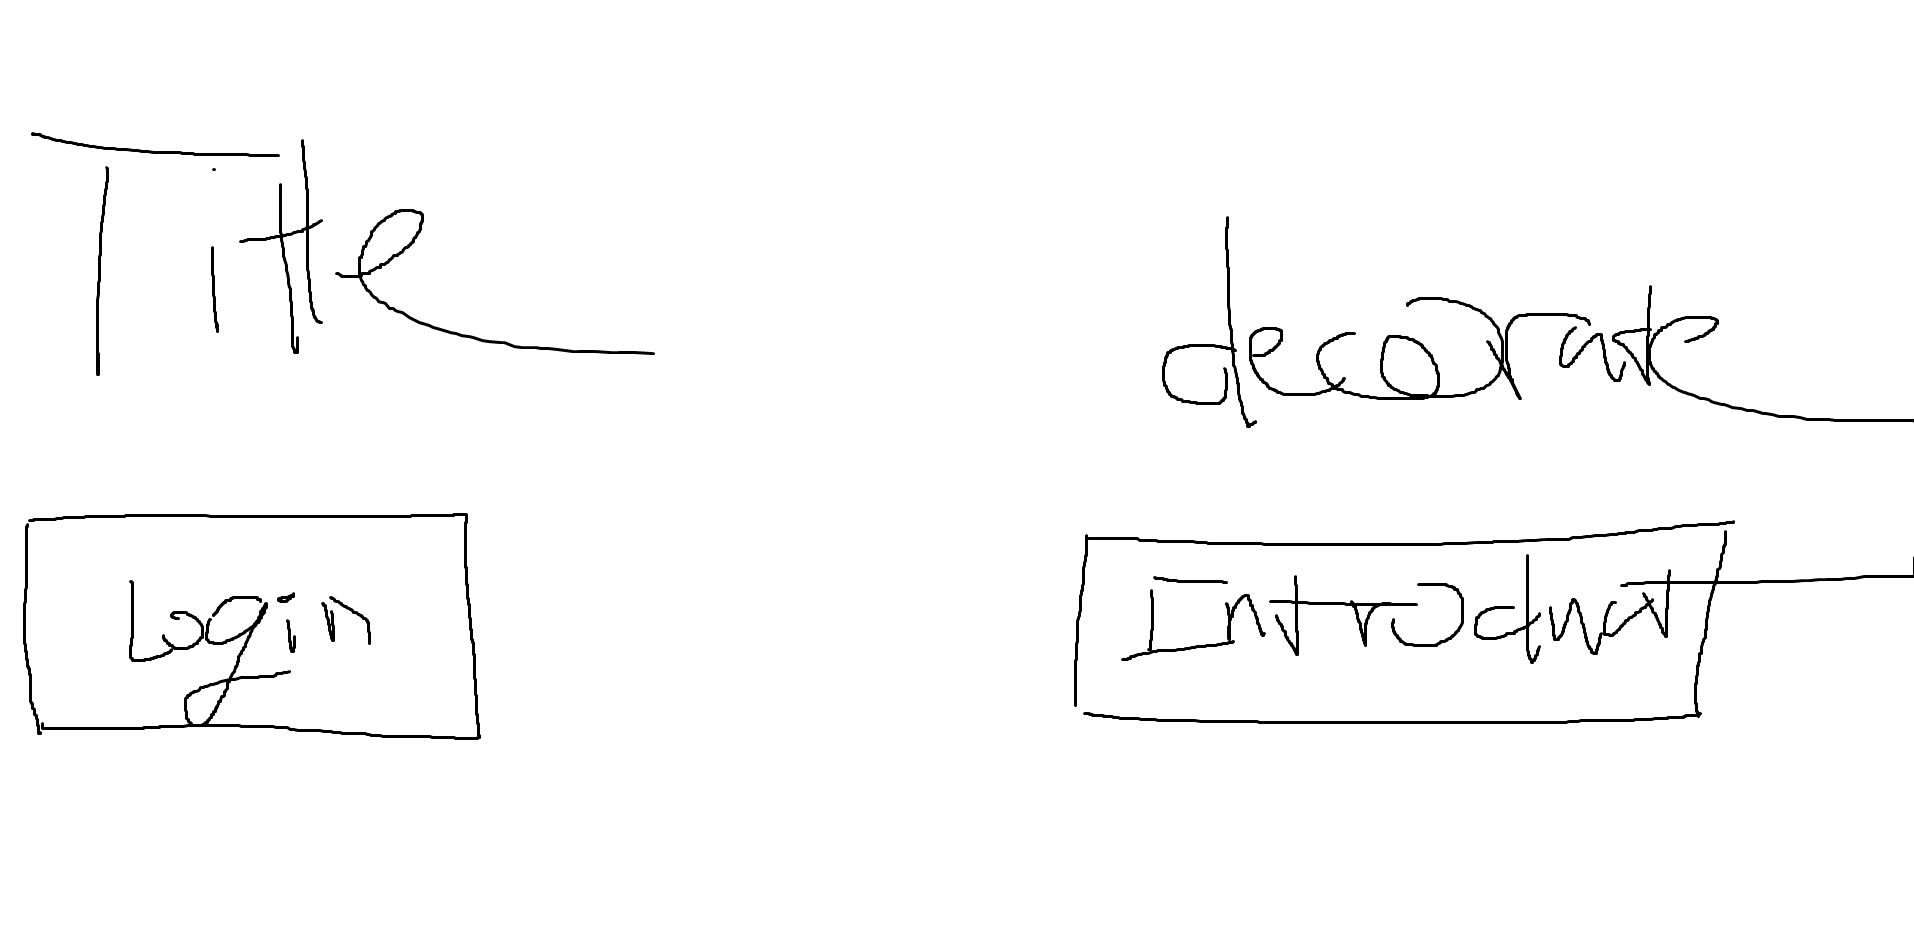 Title
decorate
Login
Introduct